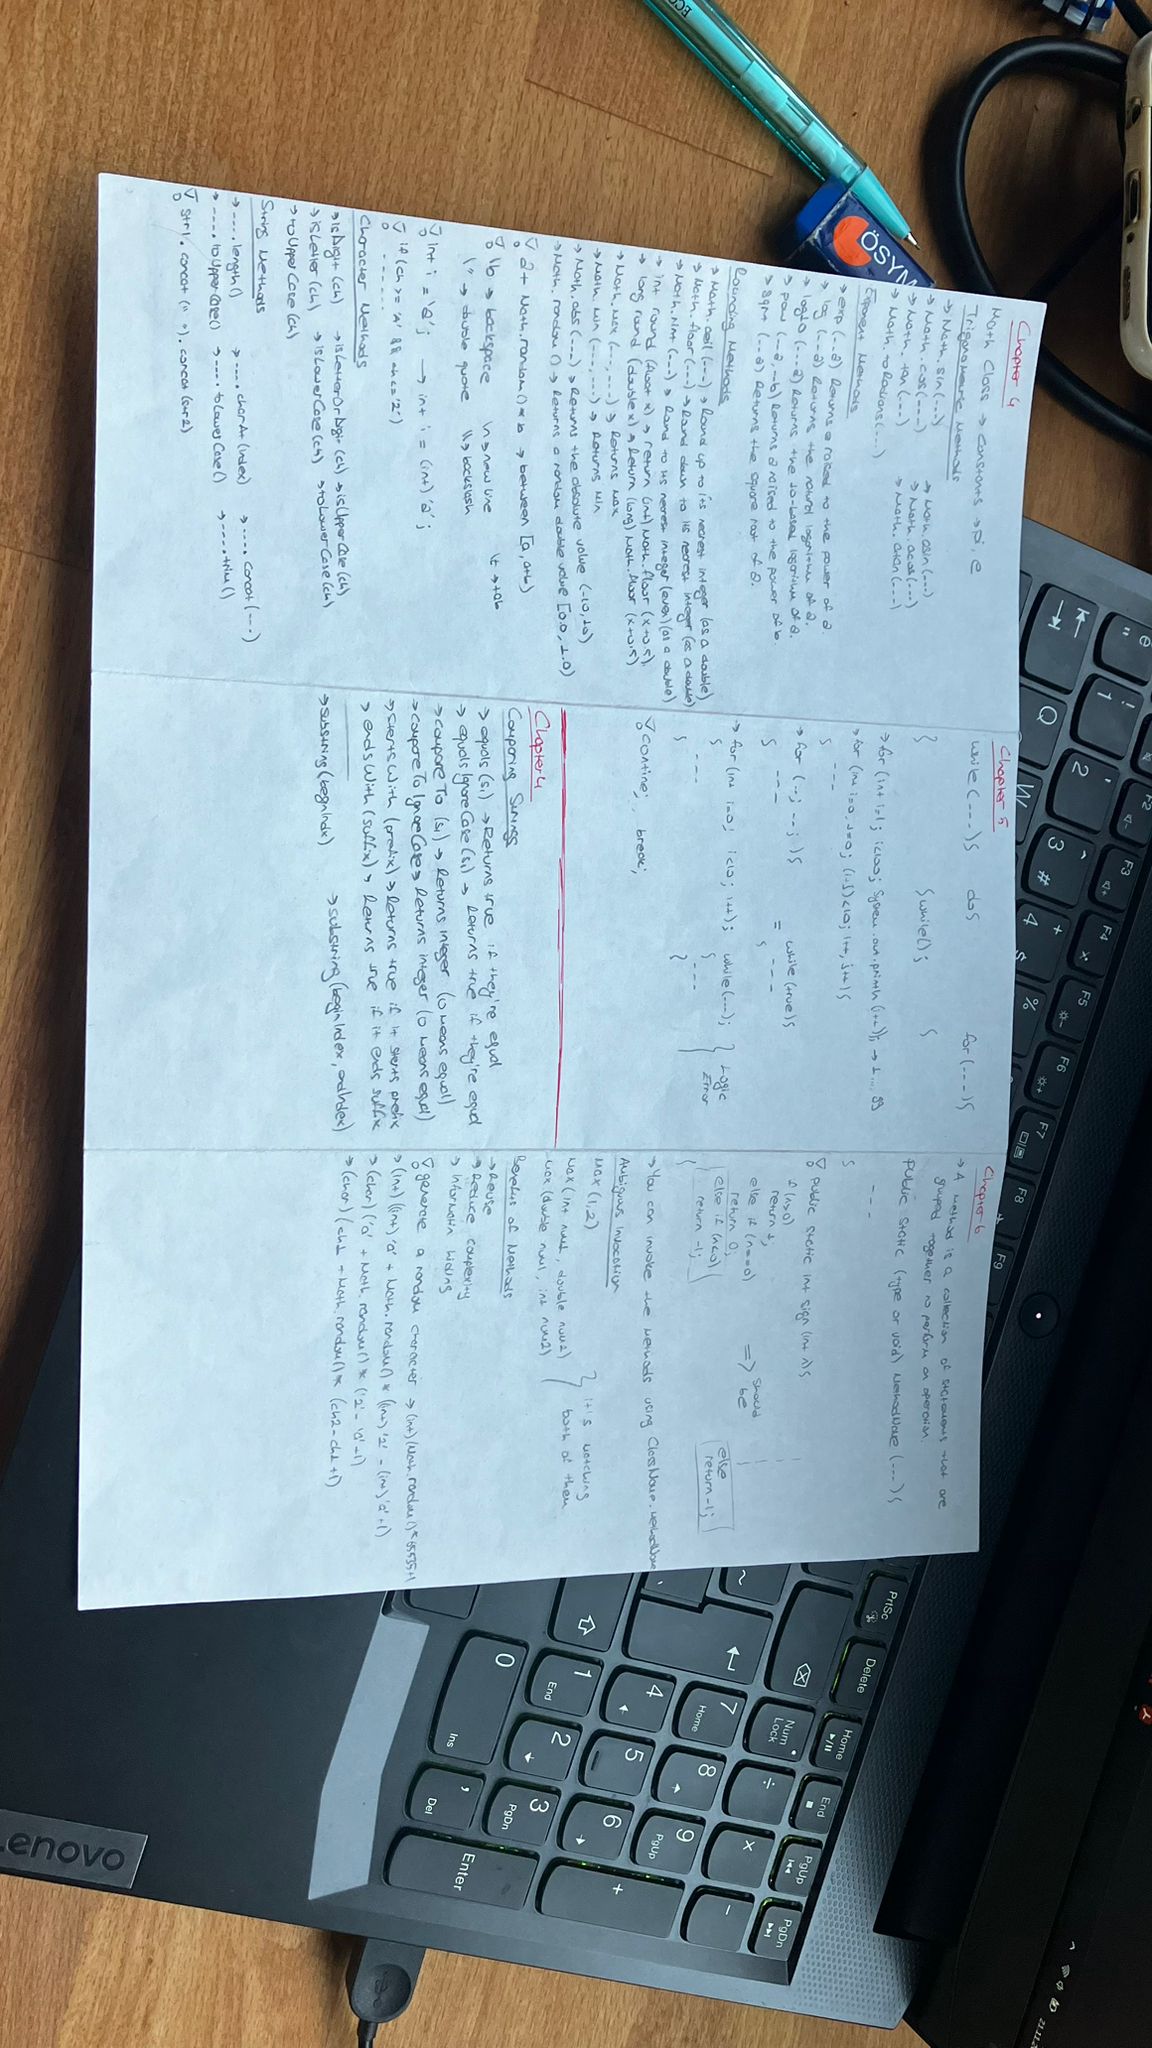 Chapter 4
Math Class → constants → pi, e
Trigonometric Methods
→ Math.sin(---)
→ Math.cos(---)
→ Math.tan(---)
→ Math.toRadians(---)
→ Math.asin(---)
→ Math.acos(---)
→ Math.atan(---)
Exponent Methods
→ exp(--a) Returns e raised to the power of a.
→ log(--a) Returns the natural logarithm of a.
→ log10(---a) Returns the 10-based logarithm of a.
→ pow(--a,--b) Returns a raised to the power of b.
→ sqrt(--a) Returns the square root of a.
Rounding Methods
→ Math.ceil(---) → Round up to its nearest integer (as a double)
→ Math.floor(---) → Round down to its nearest integer (as a double)
→ Math.rint(---) → Round to its nearest integer (even) (as a double)
→ int round (float x) → return (int) Math.floor (x+0.5)
→ long round (double x) → Return (long) Math.floor (x+0.5)
→ Math.max(---,---) → Returns max
→ Math.min(---,---) → Returns min
→ Math.abs(---) → Returns the absolute value (-10,10)
→ Math.random() → Returns a random double value [0.0, 1.0)
a + Math.random() * b → between [a, a+b)
\b → backspace \n → new line \t → tab
\" → double quote \\ → backslash
int i = 'a'; → int i = (int) 'a';
if (ch >= 'A' && ch <= 'Z')
------
Character Methods
→ isDigit(ch) → isLetterOrDigit(ch) → isUpperCase(ch)
→ isLetter(ch) → isLowerCase(ch) → toLowerCase(ch)
→ toUpperCase(ch)
String Methods
→ ----.length() → ----.charAt(index) → ----.concat(---)
→ ----.toUpperCase() → ----.toLowerCase() → ----.trim()
str1.concat(" ").concat(str2)
Chapter 5
while(---){ do{ for(---){
} }while(); }
→ for (int i=1; i<100; System.out.println(i++)); → 1...99
→ for (int i=0, j=0; (i+j)<10; i++, j++){
---
}
→ for (--; --; ){ while(true){
--- = ---
} }
→ for (int i=0; i<10; i++); while(---);
{ {
--- ---
} }
Logic
Error
contine; break;
Chapter 4
Comparing Strings
→ equals (s1) → Returns true if they're equal
→ equalsIgnoreCase(s1) → Returns true if they're equal
→ compareTo (s1) → Returns integer (0 means equal)
→ compareToIgnoreCase → Returns integer (0 means equal)
→ startsWith (prefix) → Returns true if it starts prefix
→ endsWith (suffix) → Returns true if it ends suffix
→ substring(beginIndx) → substring(beginIndex, endIndex)
Chapter 6
→ A method is a collection of statements that are
grouped together to perform an operation.
public static (type or void) MethodName (---){
---
}
public static int sign (int n){
if (n>0)
return 1;
else if (n==0)
return 0;
else if (n<0)
return -1;
}
=> should
be
else
return -1;
→ You can invoke the methods using ClassName.methodName
Ambiguous Invocation
Max (1,2)
Max (int num1, double num2)
Max (double num1, int num2)
it's matching
both of them
Benefits of Methods
→ Reuse
→ Reduce complexity
→ Informatin hiding
generate a random character → (int)(Math.random()*65535+1
→ (int) ((int) 'a' + Math.random() * ((int) 'z' - (int) 'a'+1)
→ (char) ('a' + Math.random() * ('z' - 'a'+1)
→ (char) (ch1 + Math.random() * (ch2-ch1+1)
ÖSYM
Lenovo
21.11.2
F2
F3
F4
F5
F6
F7
F8
F9
PrtSc
Delete
Home
End
PgUp
PgDn
Num
Lock
Q
W
7
Home
8
9
PgUp
4
5
6
1
End
2
3
PgDn
0
Ins
Del
Enter